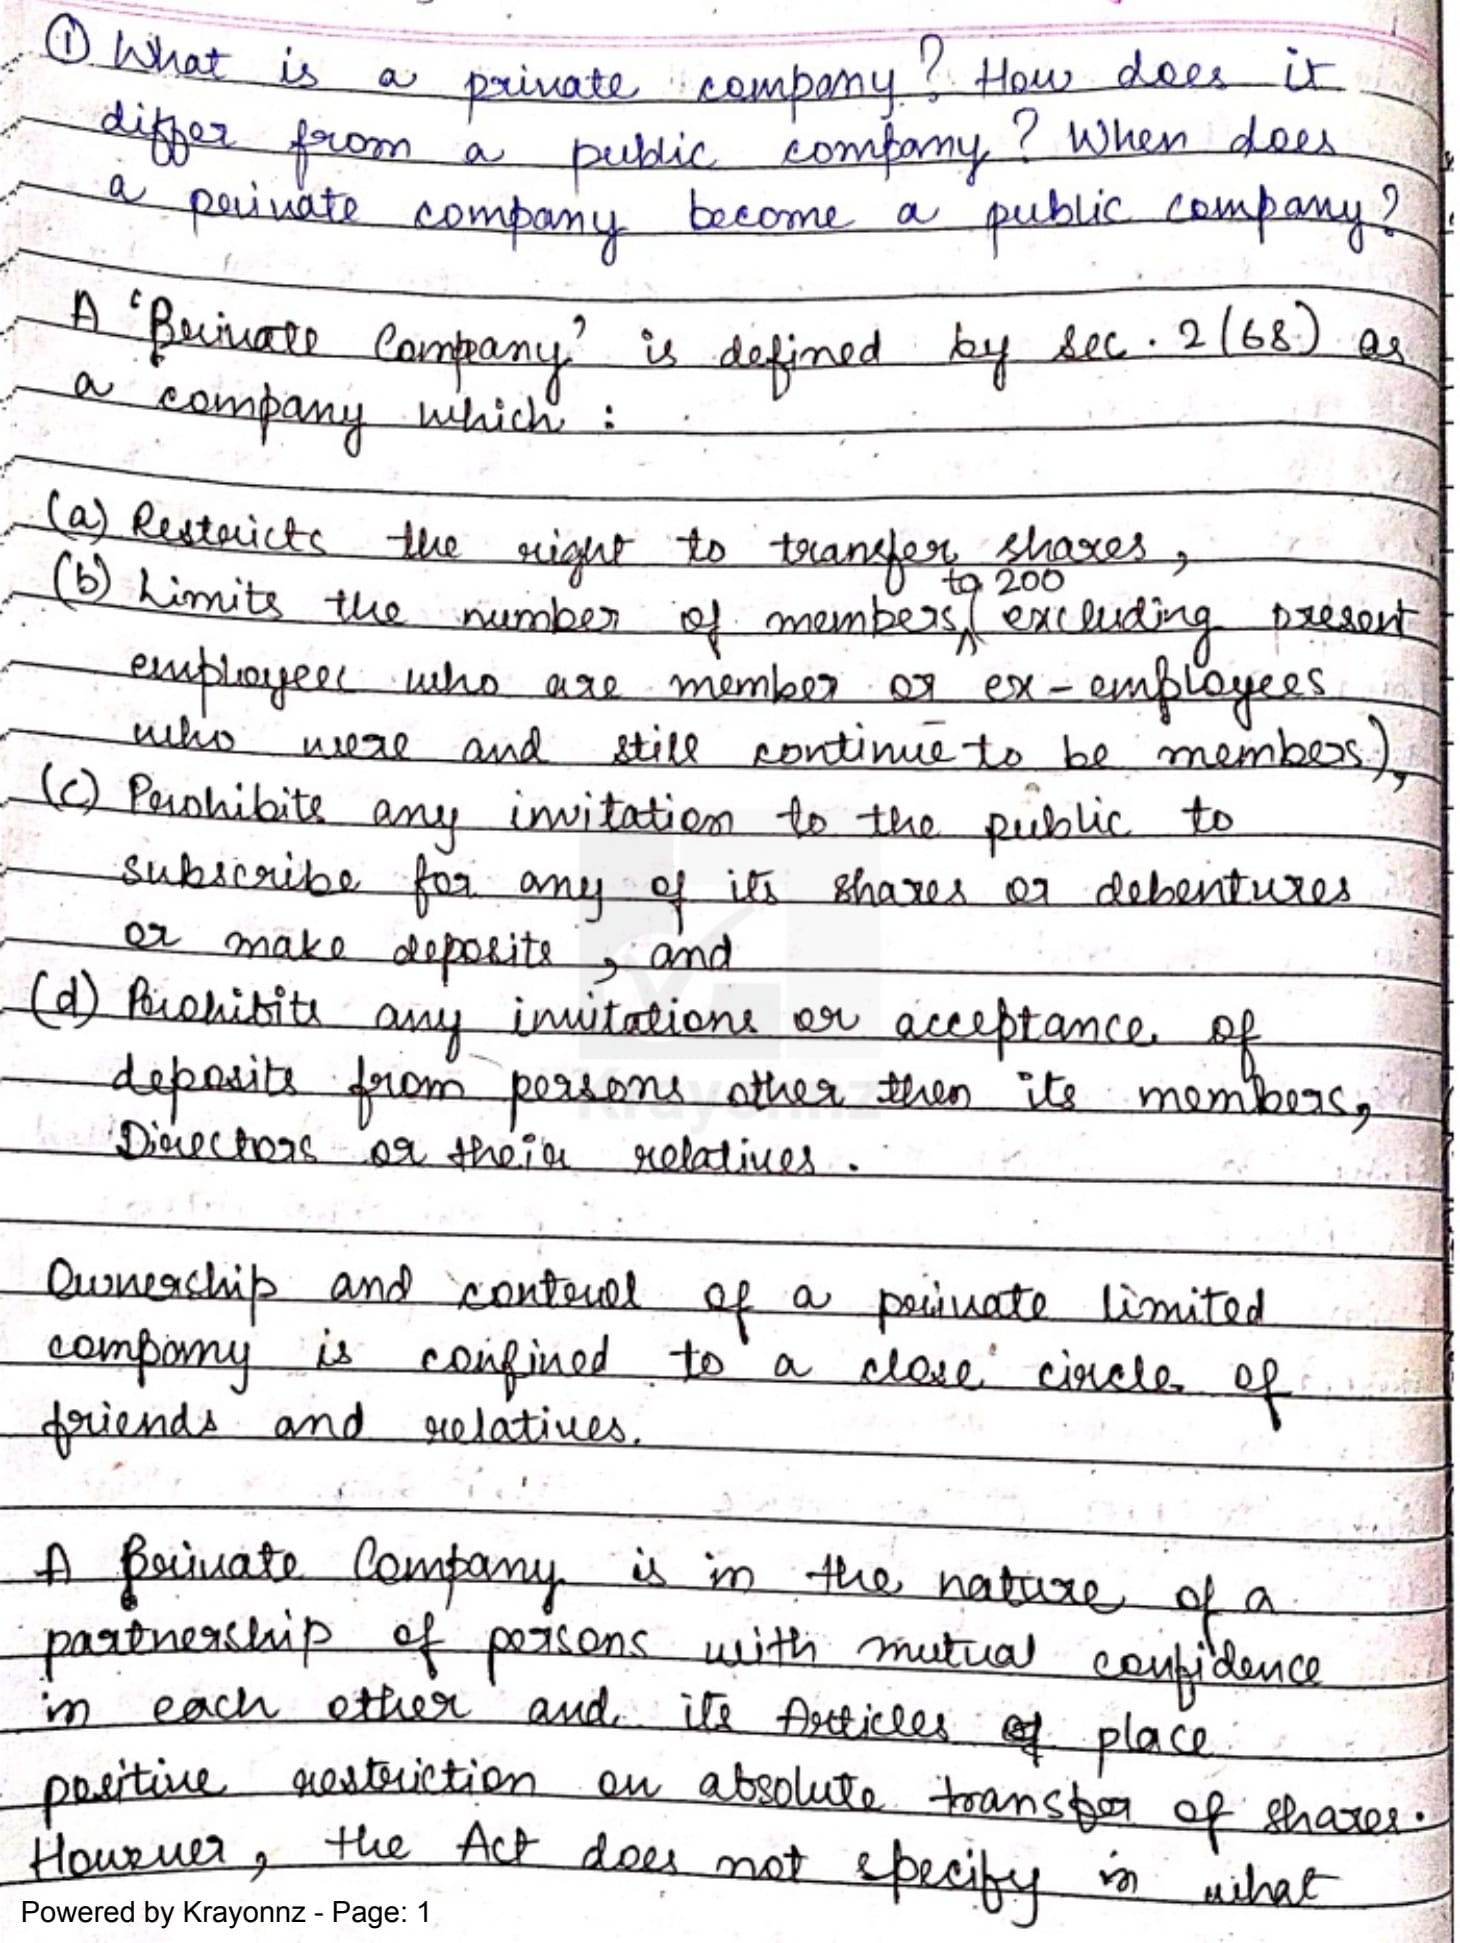 ① What is a private company? How does it
differ from a public company? When does
a private company become a public company?
A 'Private Company' is defined by sec. 2(68) as
a company which :
(a) Restricts the right to transfer shares,
to 200
(b) Limits the number of members ^ (excluding present
employees who are member or ex-employees
who were and still continue to be members),
(c) Prohibits any invitation to the public to
subscribe for any of its shares or debentures
or make deposits, and
(d) Prohibits any invitations or acceptance of
deposits from persons other then its members,
Directors or their relatives.
Ownership and control of a private limited
company is confined to a close circle of
friends and relatives.
A Private Company is in the nature of a
partnership of persons with mutual confidence
in each other and its Articles place
positive restriction on absolute transfer of shares.
However, the Act does not specify in what
Krayonnz
Powered by Krayonnz - Page: 1